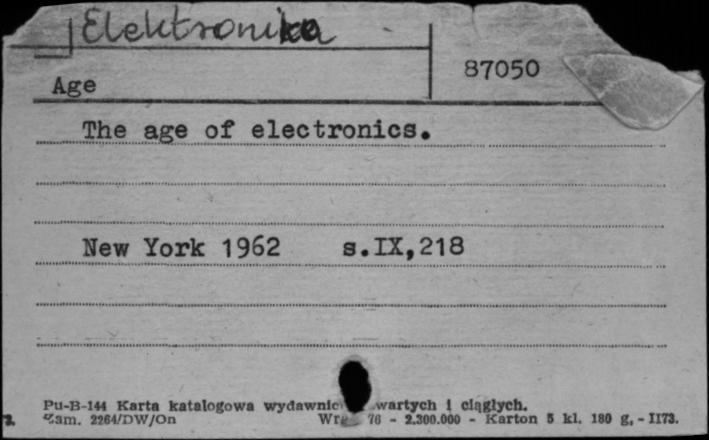 Elektronika
87050
Age
The age of electronics.
New York 1962 s.IX,218
Pu-B-144 Karta katalogowa wydawnic wartych i ciągłych.
Zam. 2264/DW/On 76 - 2.300.000 - Karton 5 kl. 180 g. - II73.